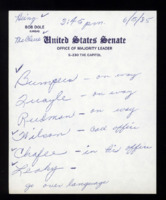 BOB DOLE
KANSAS
2:45 pm
6/5/85
United States Senate
OFFICE OF MAJORITY LEADER
S-230 THE CAPITOL
✓ Bumpers - on way
✓ Quayle - on way
✓ Rudman - on way
✓ Wilson - call office
✓ Chafee - in his office
✓ Leahy -
go over language